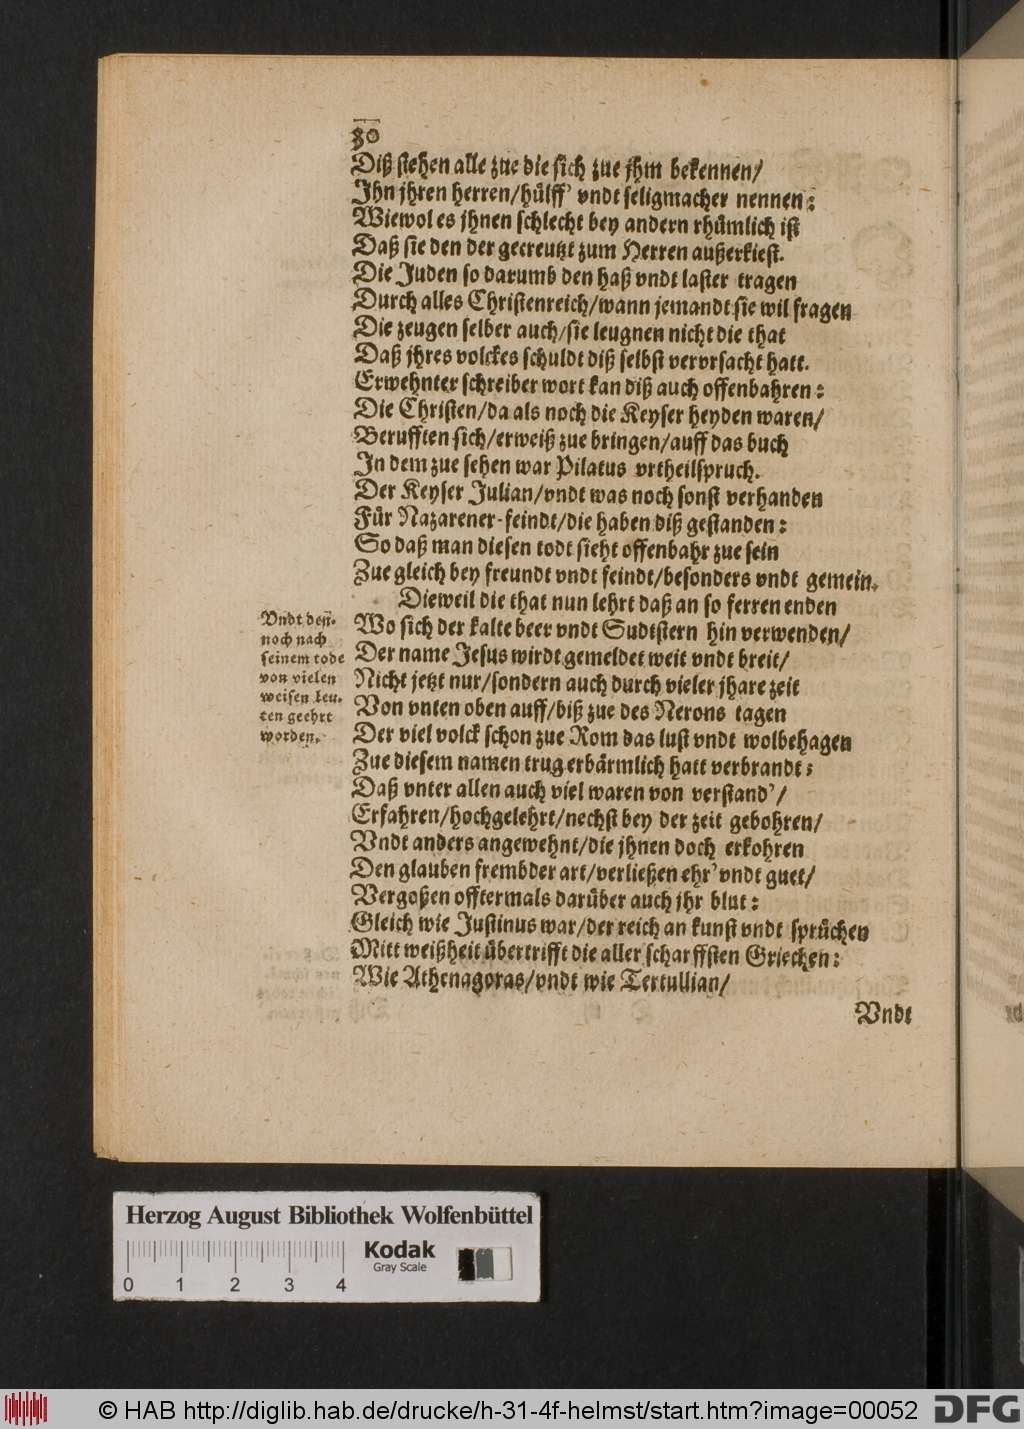 30
Diß stehen alle zue die sich zue jhm bekennen/
Ihn jhren herren/hülff' vndt seligmacher nennen:
Wiewol es jhnen schlecht bey andern rhümlich ist
Daß sie den der gecreutzt zum Herren außerkiest.
Die Juden so darumb den haß vndt laster tragen
Durch alles Christenreich/wann jemandt sie wil fragen
Die zeugen selber auch/sie leugnen nicht die that
Daß jhres volckes schuldt diß selbst vervrsacht hatt.
Erwehnter schreiber wort kan diß auch offenbahren:
Die Christen/da als noch die Keyser heyden waren/
Berufften sich/erweiß zue bringen/auff das buch
In dem zue sehen war Pilatus vrtheilspruch.
Der Keyser Julian/vndt was noch sonst verhanden
Für Nazarener-feindt/die haben diß gestanden:
So daß man diesen todt sieht offenbahr zue sein
Zue gleich bey freundt vndt feindt/besonders vndt gemein.
Dieweil die that nun lehrt daß an so ferren enden
Wo sich der kalte beer vndt Sudtstern hin verwenden/
Der name Jesus wirdt gemeldet weit vndt breit/
Nicht jetzt nur/sondern auch durch vieler jhare zeit
Von vnten oben auff/biß zue des Nerons tagen
Der viel volck schon zue Rom das lust vndt wolbehagen
Zue diesem namen trug erbärmlich hatt verbrandt:
Daß vnter allen auch viel waren von verstand'/
Erfahren/hochgelehrt/nechst bey der zeit gebohren/
Vndt anders angewehnt/die jhnen doch erkohren
Den glauben frembder art/verließen ehr' vndt guet/
Vergoßen offtermals darüber auch jhr blut:
Gleich wie Justinus war/der reich an kunst vndt sprüchen
Mitt weißheit übertrifft die aller scharffsten Griechen:
Wie Athenagoras/vndt wie Tertullian/
Vndt
Vndt den̄-
noch nach
seinem tode
von vielen
weisen leu-
ten geehrt
worden.
Herzog August Bibliothek Wolfenbüttel
Kodak
Gray Scale
0 1 2 3 4
© HAB http://diglib.hab.de/drucke/h-31-4f-helmst/start.htm?image=00052
DFG